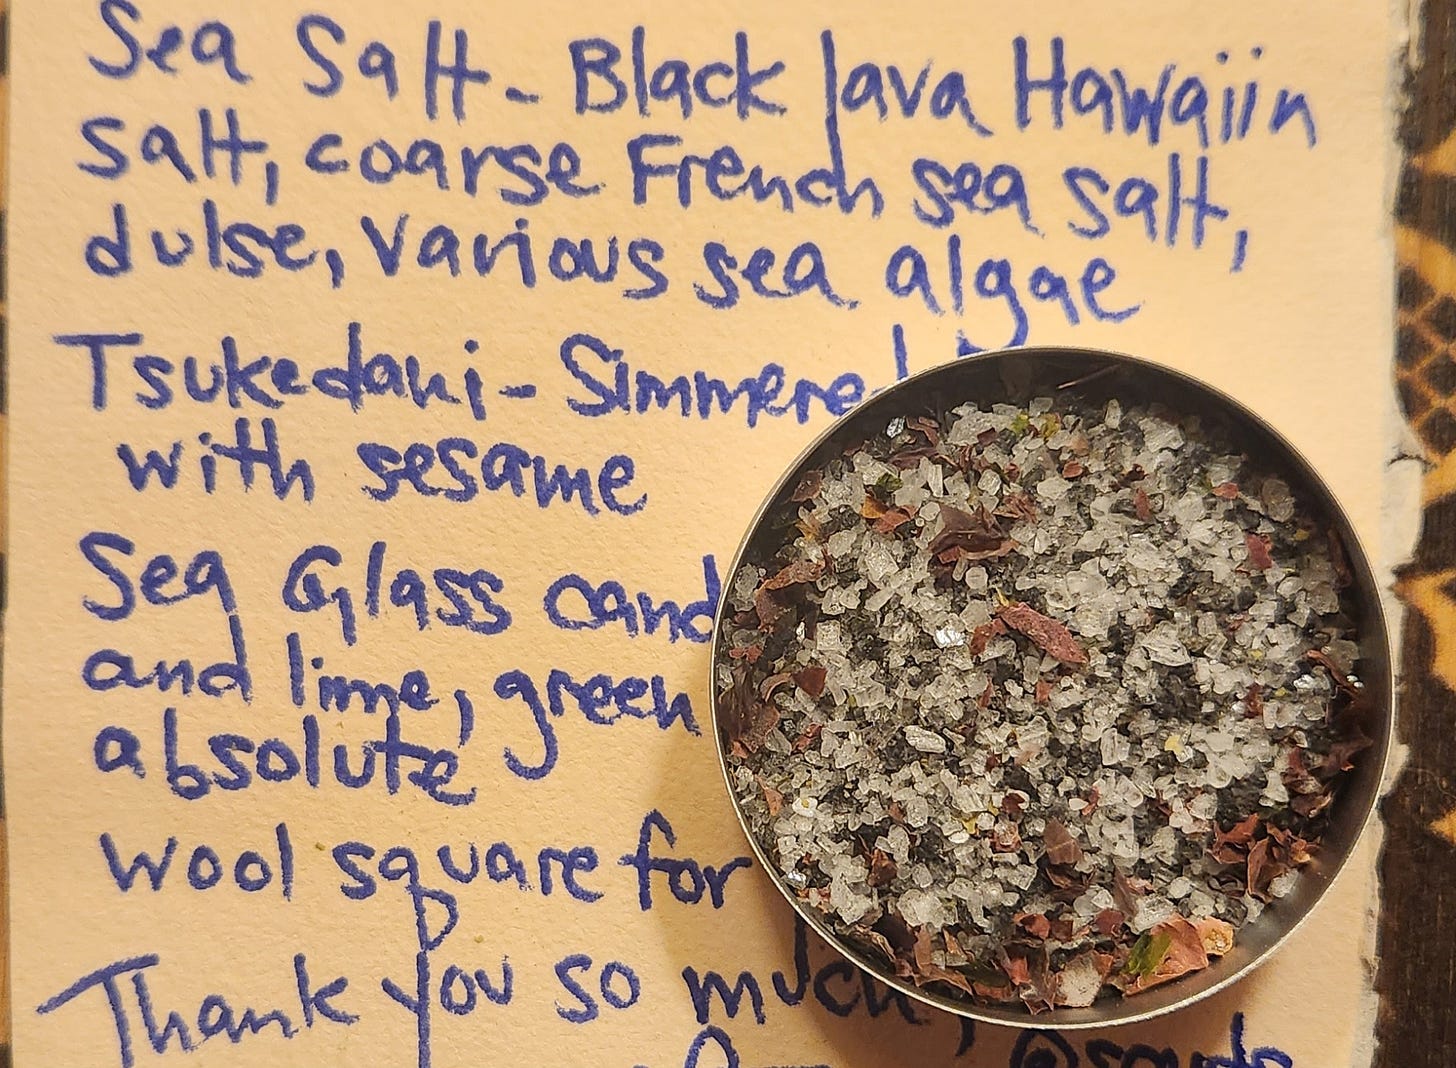 Sea Salt - Black lava Hawaiin
salt, coarse French sea salt,
dulse, various sea algae
Tsukedani - Simmered
with sesame
Sea Glass cand
and lime, green
absolute
Wool square for
Thank you so much,